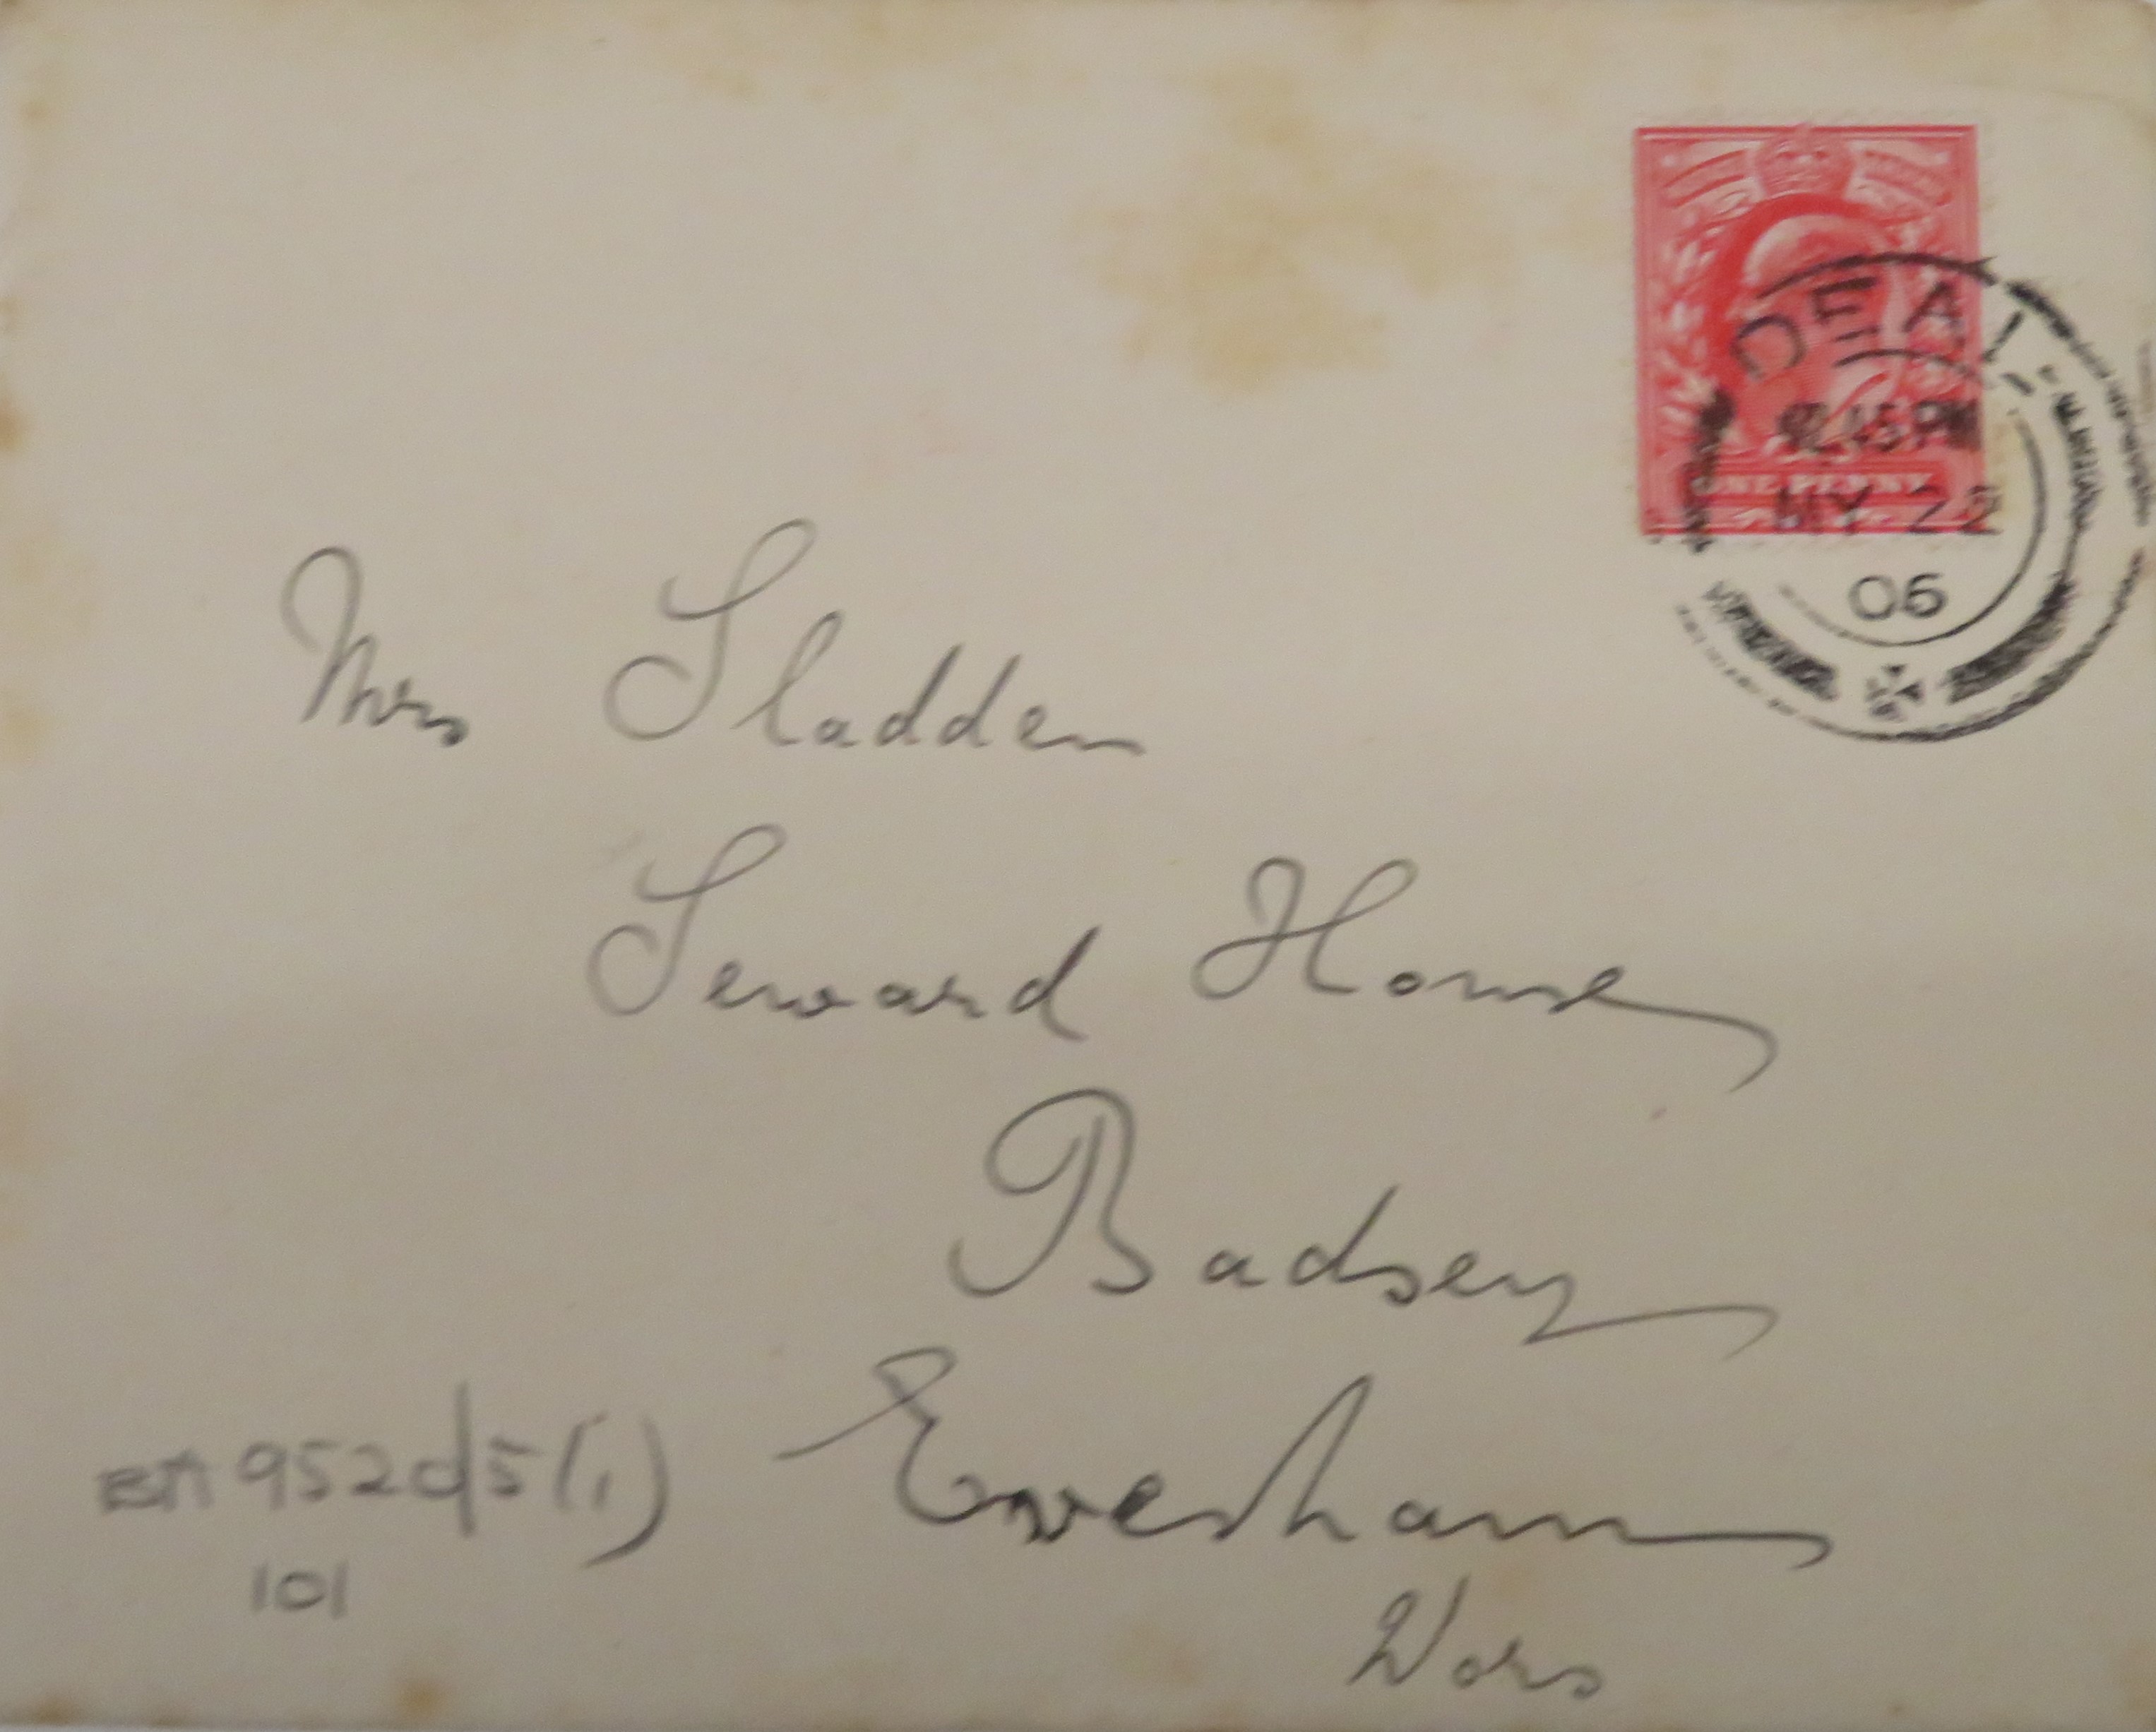 DEAL
15 PM
ONE PENNY
MY 22
06
Mrs Sladden
Seward House
Badsey
Evesham
Wors
952d5(1)
101